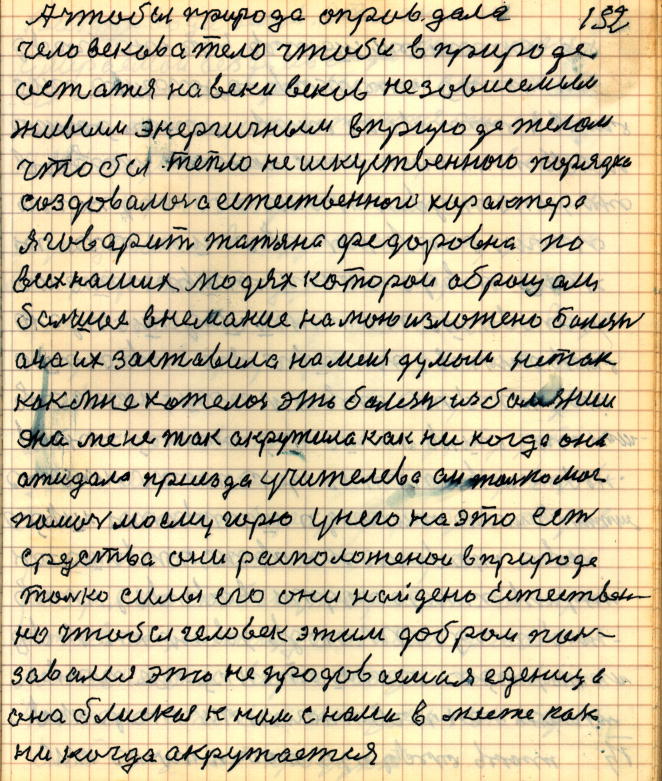 А чтобы природа оправдала 192
человека тело чтобы в природе
остатся на веки веков независемым
живым энергичным в природе телом
чтобы тепло не искуственного порядка
создовалось а естественного характера
я говарит татяна федоровна по
всих наших людях которои аброщали
балшое внемание на мою изложено болезн
она их заставила на меня думать не так
как мне хотелося это болезн из болезнии
она мене так акрутила как ни когда она
ажидала приезда учителева он толко мог
помоч моему горю у него на это ест
средства они расположенои в природе
толко силы его они найдено естествен-
но чтобы человек этим добром пол-
завался это не продоваемая еденица
она блиская к нам с нами в месте как
ни когда акружается